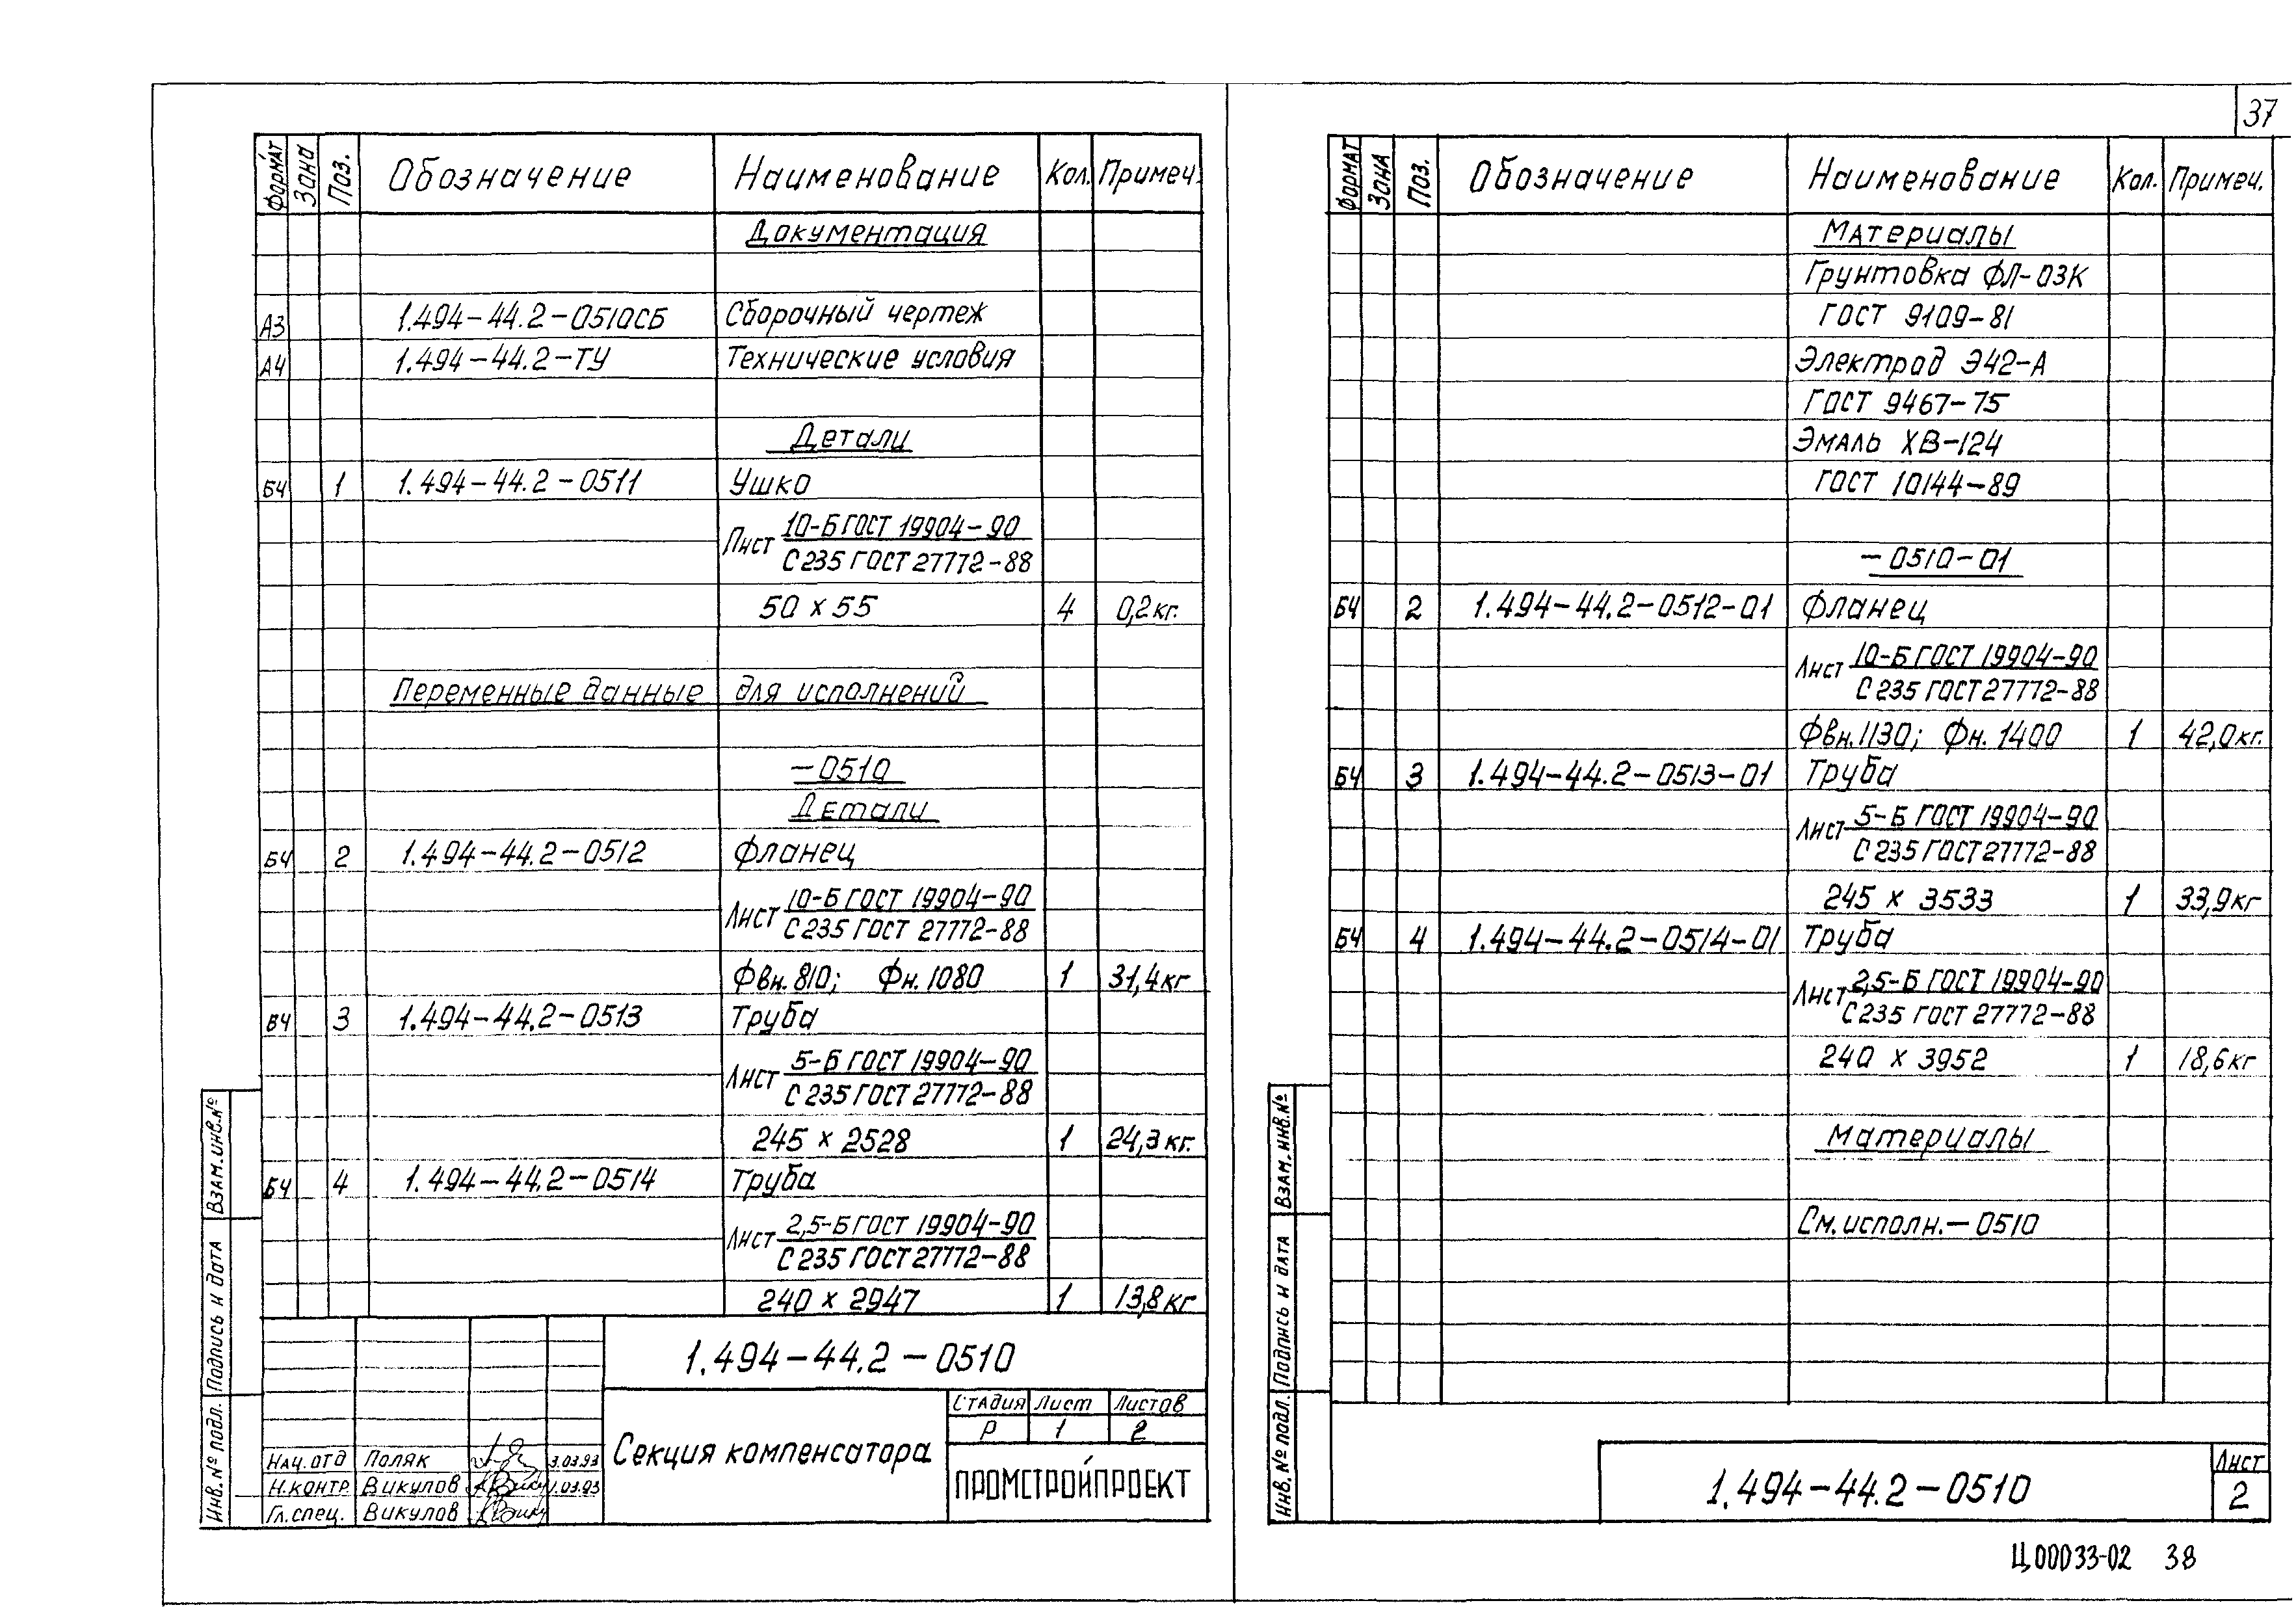 37
Формат Зона Поз. Обозначение Наименование Кол. Примеч.
Документация
А3 1.494-44.2-0510СБ Сборочный чертеж
А4 1.494-44.2-ТУ Технические условия
Детали
БЧ 1 1.494-44.2-0511 Ушко
Лист 10-Б ГОСТ 19904-90
С235 ГОСТ 27772-88
50 x 55 4 0,2кг.
Переменные данные для исполнений
-0510
Детали
БЧ 2 1.494-44.2-0512 Фланец
Лист 10-Б ГОСТ 19904-90
С235 ГОСТ 27772-88
Фвн. 810; Фн. 1080 1 31,4кг
БЧ 3 1.494-44.2-0513 Труба
Лист 5-Б ГОСТ 19904-90
С235 ГОСТ 27772-88
245 x 2528 1 24,3кг.
БЧ 4 1.494-44.2-0514 Труба
Лист 2,5-Б ГОСТ 19904-90
С235 ГОСТ 27772-88
240 x 2947 1 13,8кг
1.494-44.2-0510
Секция компенсатора
Стадия Лист Листов
Р 1 2
ПРОМСТРОЙПРОЕКТ
Нач.отд Поляк 3.03.93
Н.контр. Викулов 1.03.93
Гл.спец. Викулов
Взам.инв.№
Подпись и дата
Инв.№ подл.
Формат Зона Поз. Обозначение Наименование Кол. Примеч.
Материалы
Грунтовка ФЛ-03К
ГОСТ 9109-81
Электрод Э42-А
ГОСТ 9467-75
Эмаль ХВ-124
ГОСТ 10144-89
-0510-01
БЧ 2 1.494-44.2-0512-01 Фланец
Лист 10-Б ГОСТ 19904-90
С235 ГОСТ 27772-88
Фвн. 1130; Фн. 1400 1 42,0кг.
БЧ 3 1.494-44.2-0513-01 Труба
Лист 5-Б ГОСТ 19904-90
С235 ГОСТ 27772-88
245 x 3533 1 33,9кг
БЧ 4 1.494-44.2-0514-01 Труба
Лист 2,5-Б ГОСТ 19904-90
С235 ГОСТ 27772-88
240 x 3952 1 18,6кг
Материалы
См. исполн.-0510
Взам.инв.№
Подпись и дата
Инв.№ подл.
1.494-44.2-0510
Лист
2
Ц00033-02 38